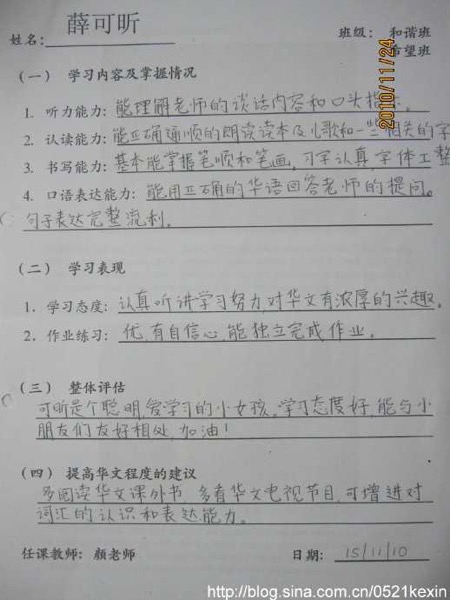 姓名: 薛可昕 班级: 和谐班
希望班
2010/11/24
(一) 学习内容及掌握情况
1. 听力能力: 能理解老师的谈话内容和口头指示.
2. 认读能力: 能正确通顺的朗读读本及儿歌和一些相关的字
3. 书写能力: 基本能掌握笔顺和笔画, 习字认真, 字体工整
4. 口语表达能力: 能用正确的华语回答老师的提问。
句子表达完整流利.
(二) 学习表现
1. 学习态度: 认真听讲学习努力,对华文有浓厚的兴趣.
2. 作业练习: 优,有自信心,能独立完成作业。
(三) 整体评估
可昕是个聪明,爱学习的小女孩,学习态度好,能与小
朋友们友好相处,加油!
(四) 提高华文程度的建议
多阅读华文课外书,多看华文电视节目,可增进对
词汇的认识和表达能力。
任课教师: 颜老师 日期: 15/11/10
http://blog.sina.com.cn/0521kexin